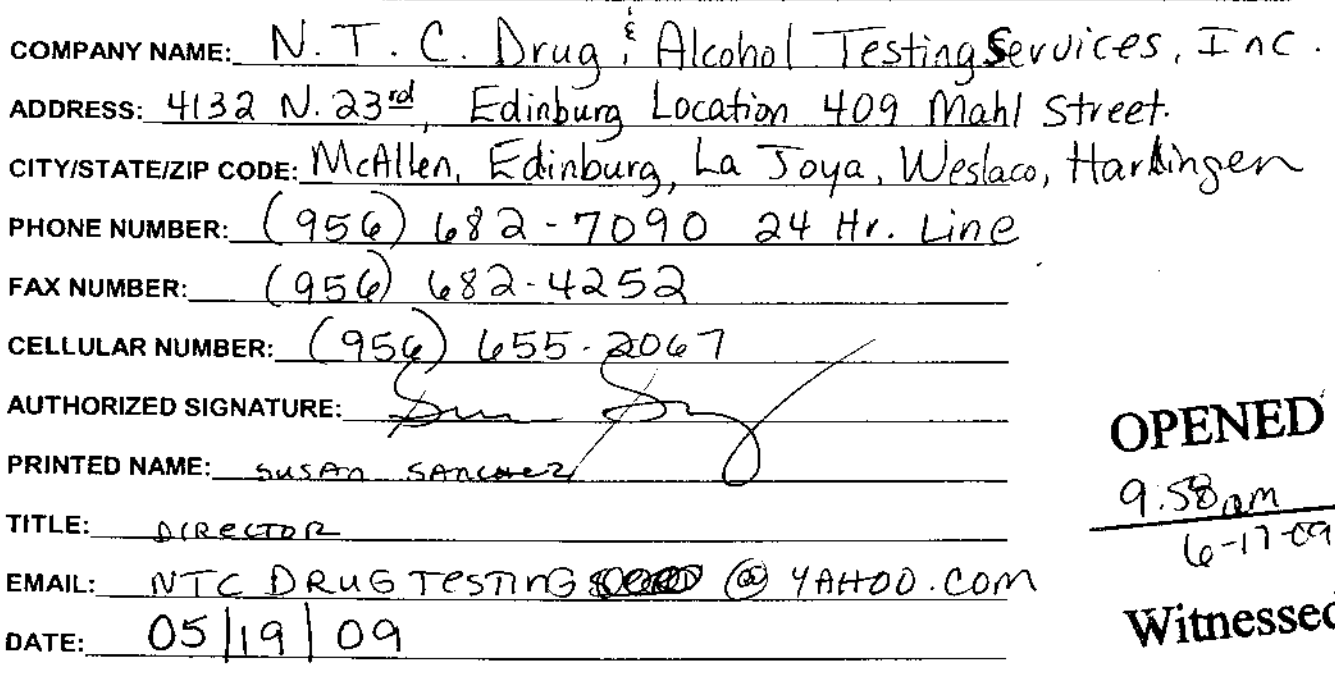 COMPANY NAME: N.T.C. Drug & Alcohol Testing Services, Inc.
ADDRESS: 4132 N. 23rd, Edinburg Location 409 Mahl Street.
CITY/STATE/ZIP CODE: McAllen, Edinburg, La Joya, Weslaco, Harlingen
PHONE NUMBER: (956) 682-7090 24 Hr. Line
FAX NUMBER: (956) 682-4252
CELLULAR NUMBER: (956) 655-2067
AUTHORIZED SIGNATURE:
PRINTED NAME: SUSAN SANCHEZ
TITLE: DIRECTOR
EMAIL: NTC DRUG TESTING @ YAHOO.COM
DATE: 05/19/09
OPENED
9:58am
6-17-09
Witnessed